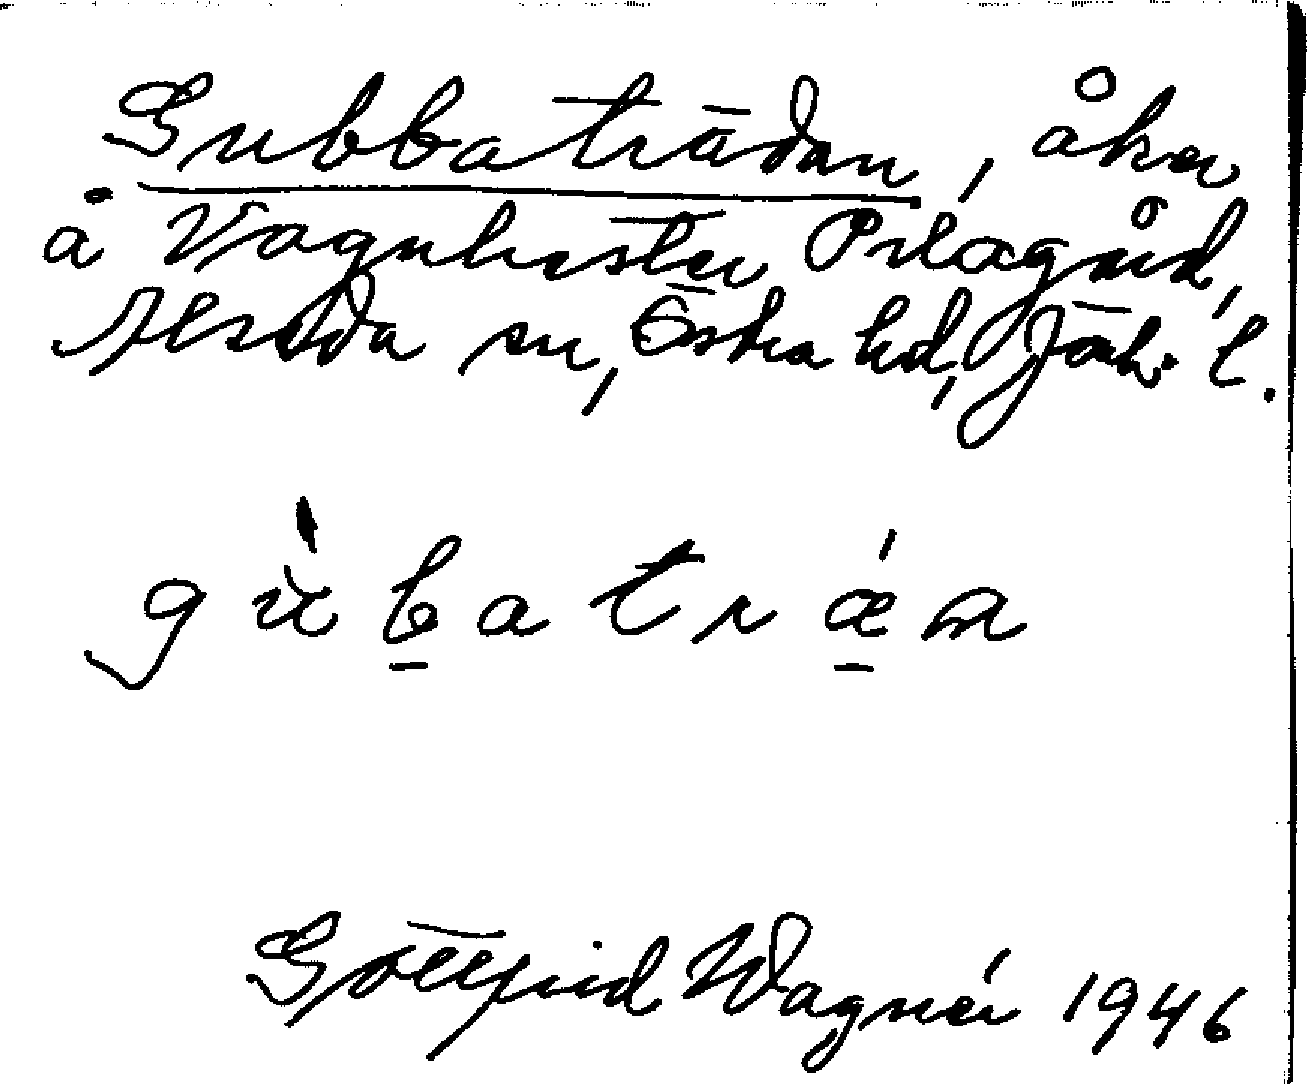 Gubbaträdan, åker
å Vagnhester Prlagård,
Alseda sn, Östra hd, Jönk. l.
gùbatrǽa
Gottfrid Wagnér 1946